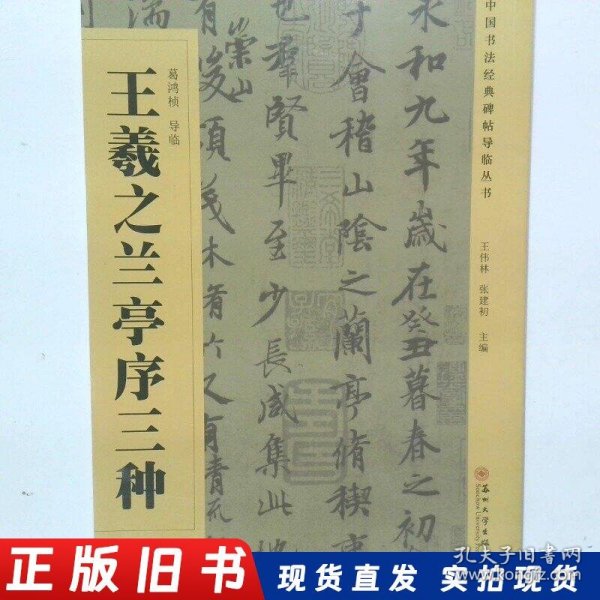 中国书法经典碑帖导临丛书
王伟林 张建初 主编
葛鸿桢 导临
王羲之兰亭序三种
永和九年歲在癸丑暮春之初
于會稽山陰之蘭亭脩稧事
也羣賢畢至少長咸集此地
有崇山
峻領茂林脩竹又有清流
苏州大学出版
Soochow University
正版旧书
现货直发 实拍现货
孔夫子旧书网
www.kongfz.com